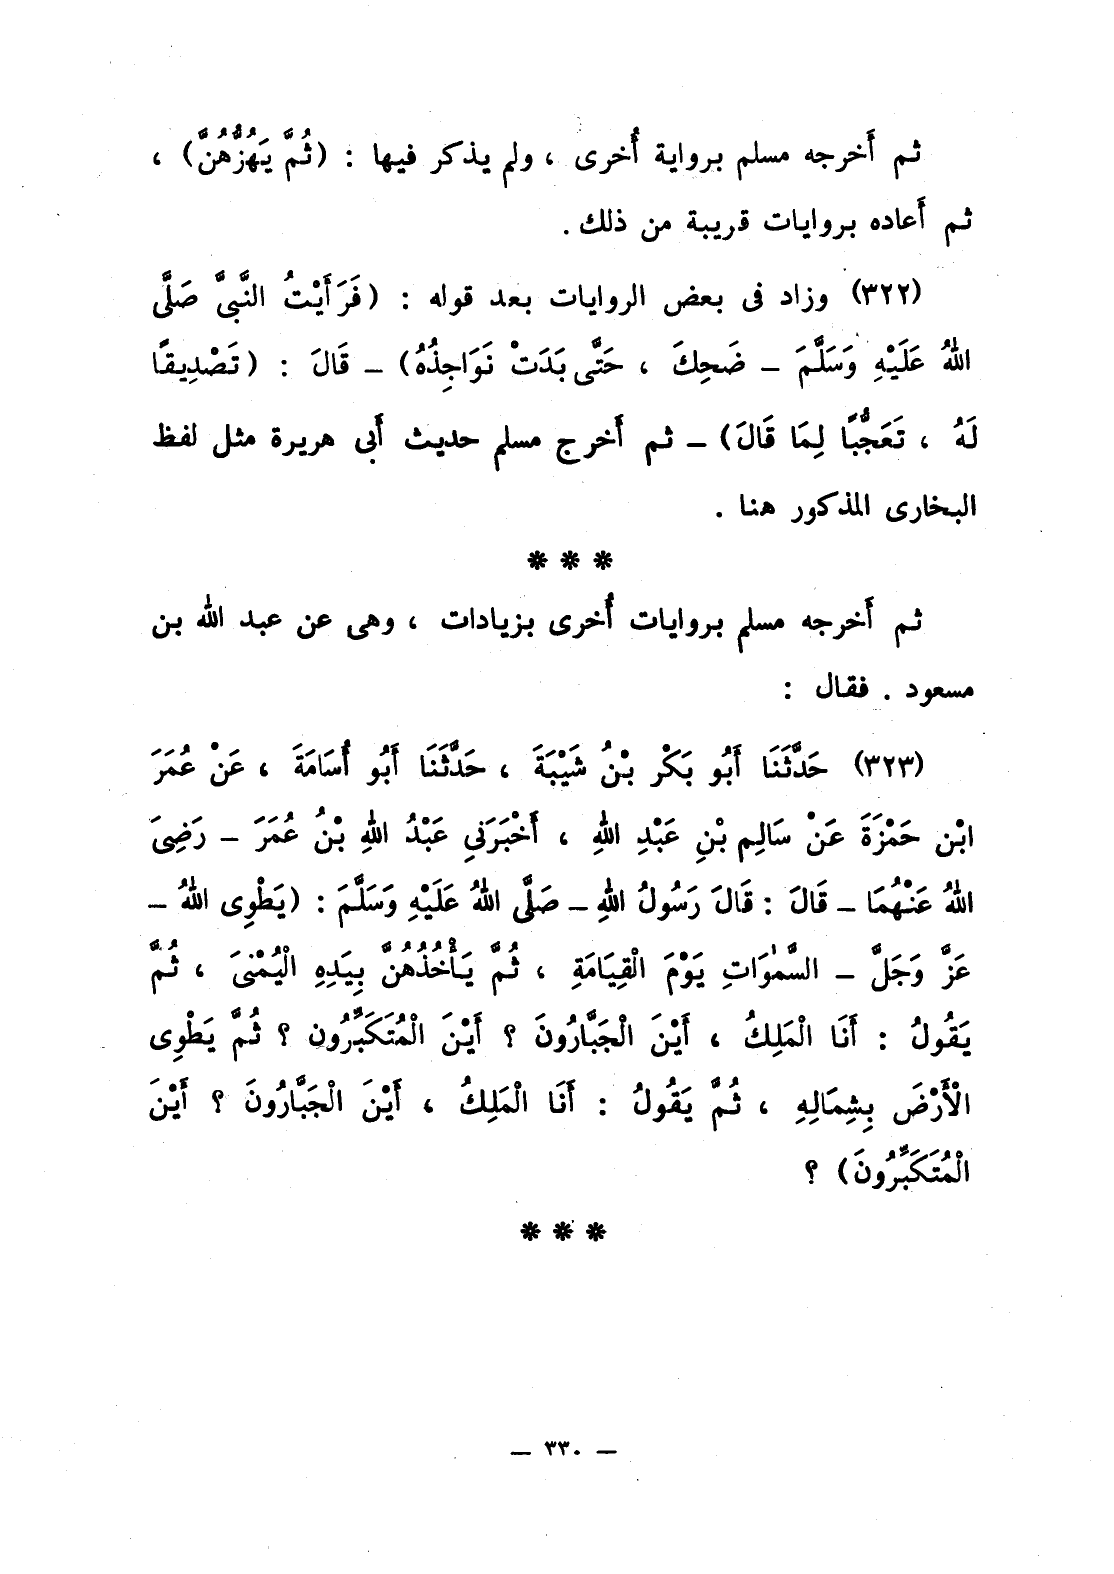 ثم أَخرجه مسلم برواية أُخرى ، ولم يذكر فيها : (ثُمَّ يَهُزُّهُنَّ) ،
ثم أَعاده بروايات قريبة من ذلك .
(٣٢٢) وزاد فى بعض الروايات بعد قوله : (فَرَأَيْتُ النَّبِىَّ صَلَّى
اللهُ عَلَيْهِ وَسَلَّمَ – ضَحِكَ ، حَتَّى بَدَتْ نَوَاجِذُهُ) – قَالَ : (تَصْدِيقًا
لَهُ ، تَعَجُّبًا لِمَا قَالَ) – ثم أَخرج مسلم حديث أَبى هريرة مثل لفظ
البخارى المذكور هنا .
* * *
ثم أَخرجه مسلم بروايات أُخرى بزيادات ، وهى عن عبد الله بن
مسعود . فقال :
(٣٢٣) حَدَّثَنَا أَبُو بَكْرِ بْنُ شَيْبَةَ ، حَدَّثَنَا أَبُو أُسَامَةَ ، عَنْ عُمَرَ
ابْنِ حَمْزَةَ عَنْ سَالِمِ بْنِ عَبْدِ اللهِ ، أَخْبَرَنِي عَبْدُ اللهِ بْنُ عُمَرَ – رَضِىَ
اللهُ عَنْهُمَا – قَالَ : قَالَ رَسُولُ اللهِ – صَلَّى اللهُ عَلَيْهِ وَسَلَّمَ : (يَطْوِى اللهُ –
عَزَّ وَجَلَّ – السَّمٰوَاتِ يَوْمَ الْقِيَامَةِ ، ثُمَّ يَأْخُذُهُنَّ بِيَدِهِ الْيُمْنىَ ، ثُمَّ
يَقُولُ : أَنَا الْمَلِكُ ، أَيْنَ الْجَبَّارُونَ ؟ أَيْنَ الْمُتَكَبِّرُون ؟ ثُمَّ يَطْوِى
الْأَرْضَ بِشِمَالِهِ ، ثُمَّ يَقُولُ : أَنَا الْمَلِكُ ، أَيْنَ الْجَبَّارُونَ ؟ أَيْنَ
الْمُتَكَبِّرُونَ) ؟
* * *
– ٣٣٠ –